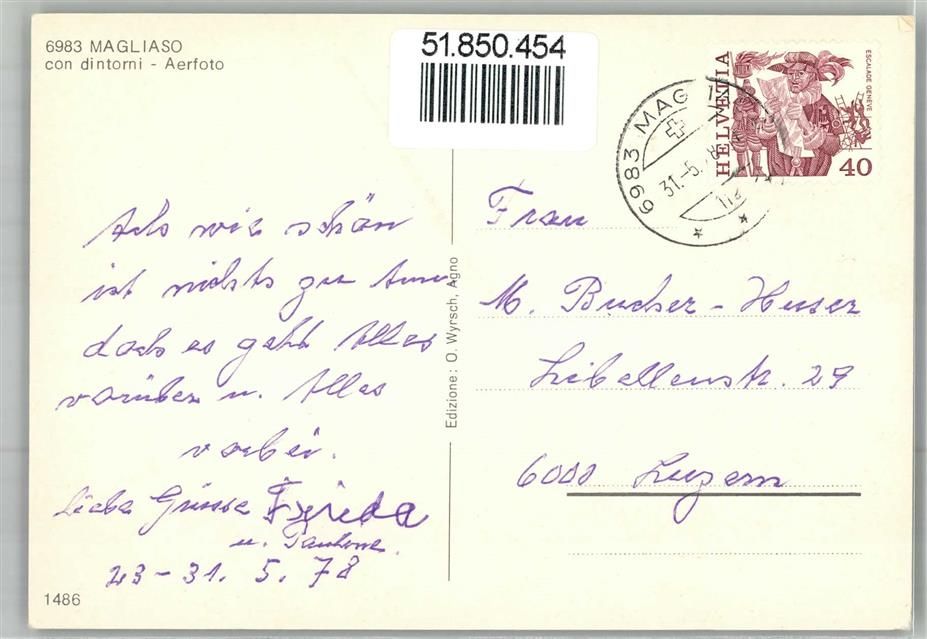 6983 MAGLIASO
con dintorni - Aerfoto
51.850.454
HELVETIA
ESCALADE GENÈVE
40
6983 MAG
31.-5.
Ach wie schön
ist nichts zu tun
doch es geht Alles
vorüber u. Alles
vorbei.
Liebe Grüsse Frieda
u.
23-31. 5. 78
1486
Edizione: O. Wyrsch, Agno
Frau
M. Bucher - Huser
Libellenstr. 29
6000 Luzern